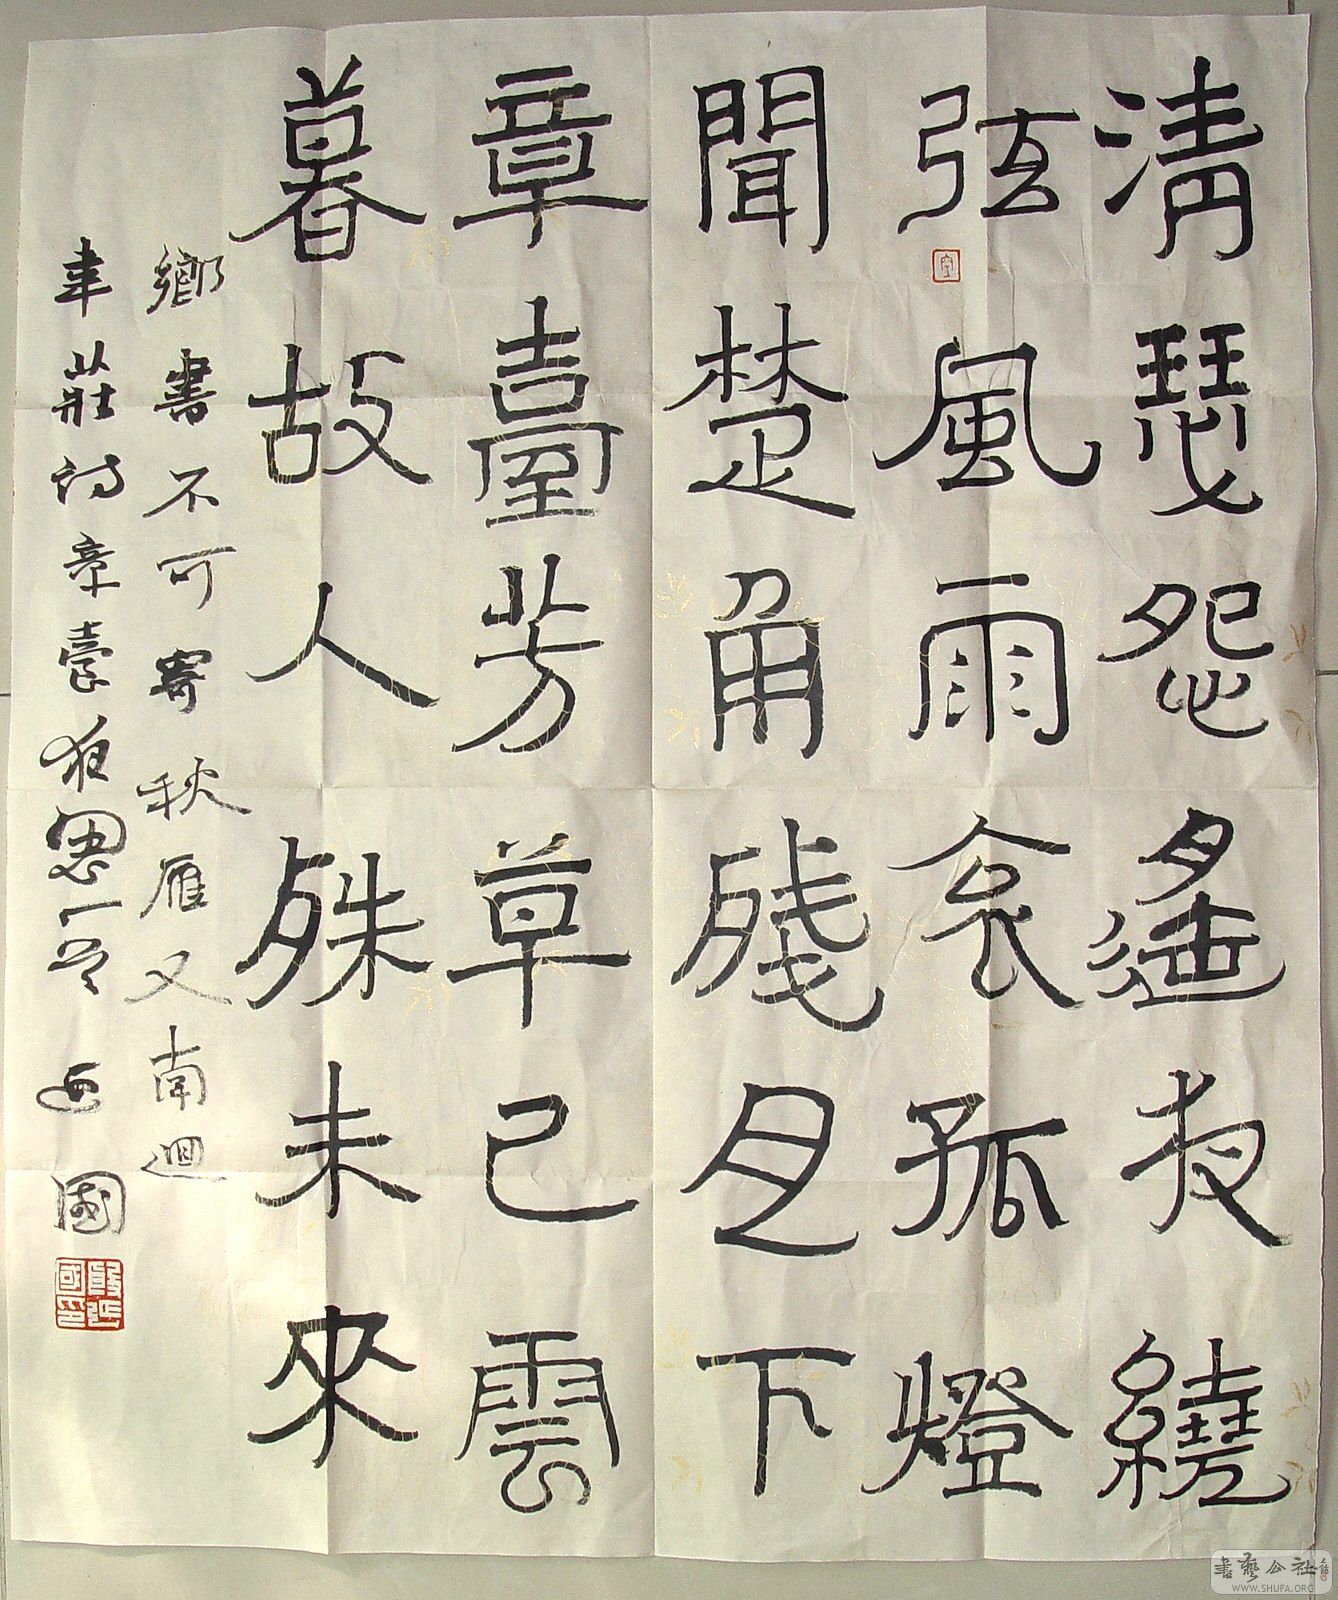 清瑟怨遙夜繞
弦風雨哀孤燈
聞楚角殘月下
章臺芳草已雲
暮故人殊未來
鄉書不可寄秋雁又南迴
韋莊詩章臺夜思一首 國
書藝公社
WWW.SHUFA.ORG